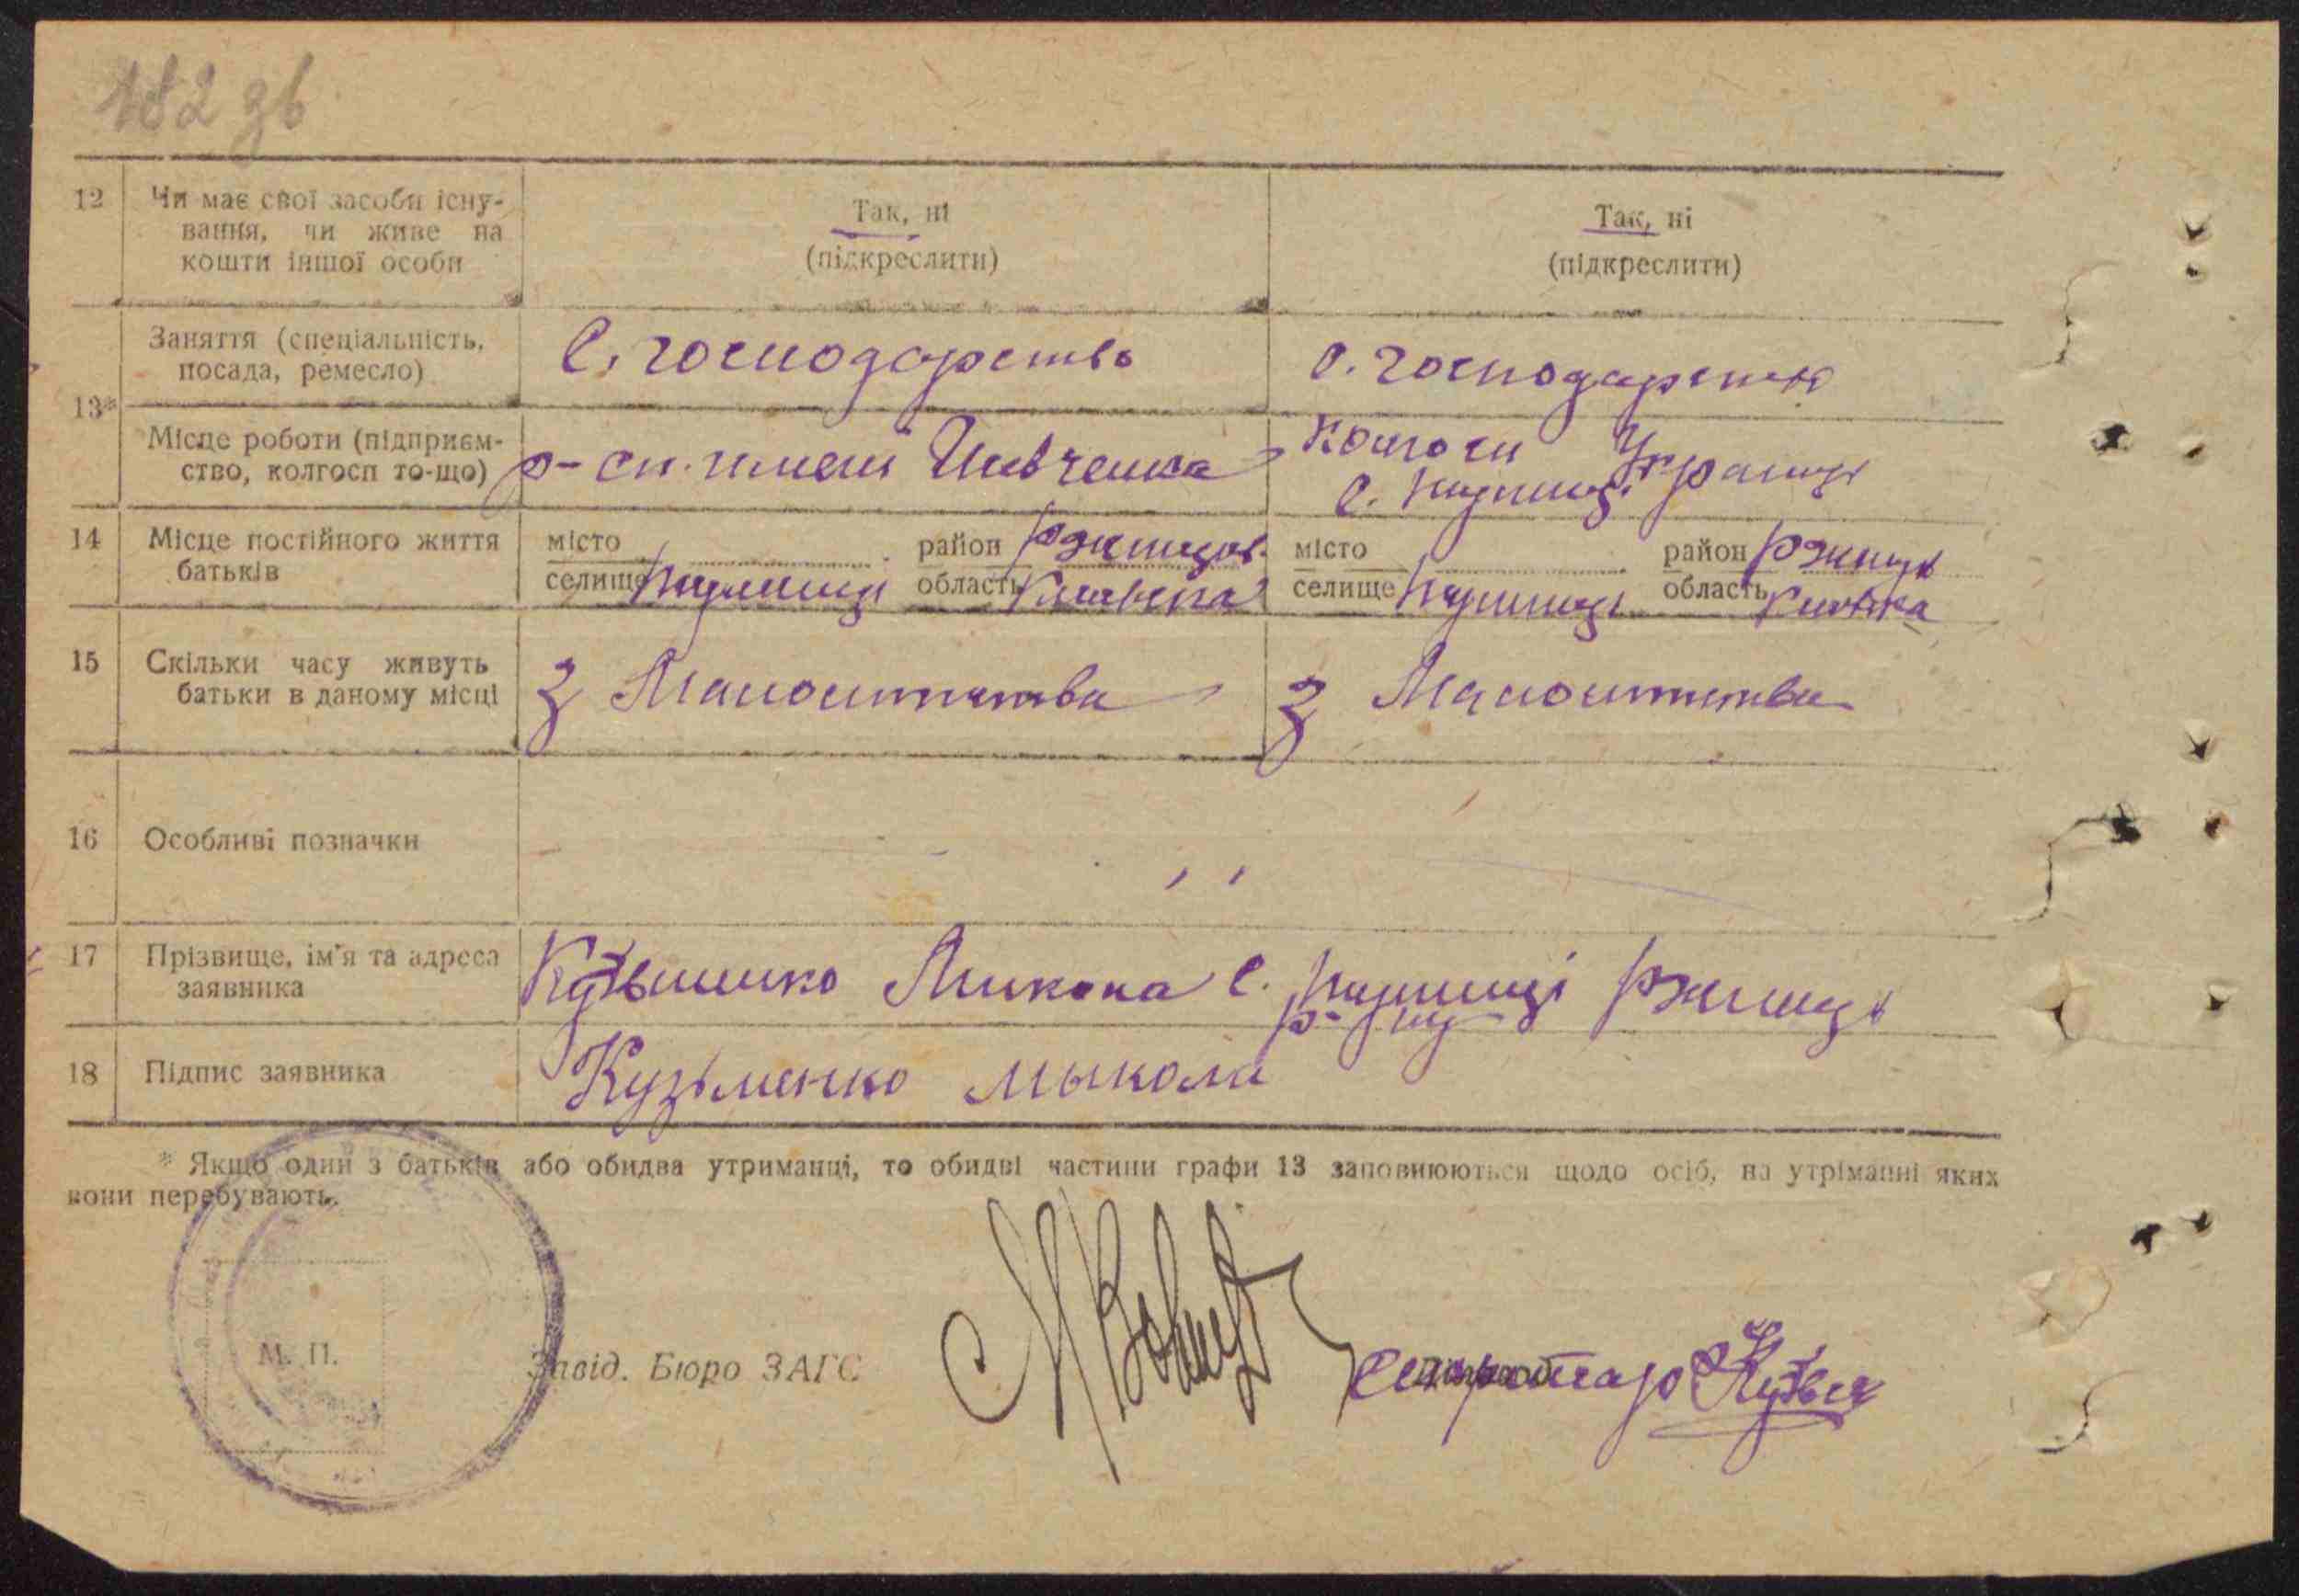 182 зв
12 Чи має свої засоби існу-
вання, чи живе на
кошти іншої особи
Так, ні
(підкреслити)
Так, ні
(підкреслити)
13*
Заняття (спеціальність,
посада, ремесло)
С. господарство
с. господарство
Місце роботи (підприєм-
ство, колгосп то-що)
імені Шевченка
Колгосп
С.
14 Місце постійного життя
батьків
місто район Ржищів.
селище область Київська
місто район Ржищів
селище область Київська
15 Скільки часу живуть
батьки в даному місці
З Малолітства
З Малолітства
16 Особливі позначки
17 Прізвище, ім'я та адреса
заявника
Кузьменко Микола с. Ржищів
р-ну
18 Підпис заявника
Кузьменко Мыкола
* Якщо один з батьків або обидва утриманці, то обидві частини графи 13 заповнюються щодо осіб, на утріманні яких
вони перебувають.
М. П.
Завід. Бюро ЗАГС
Секретарь